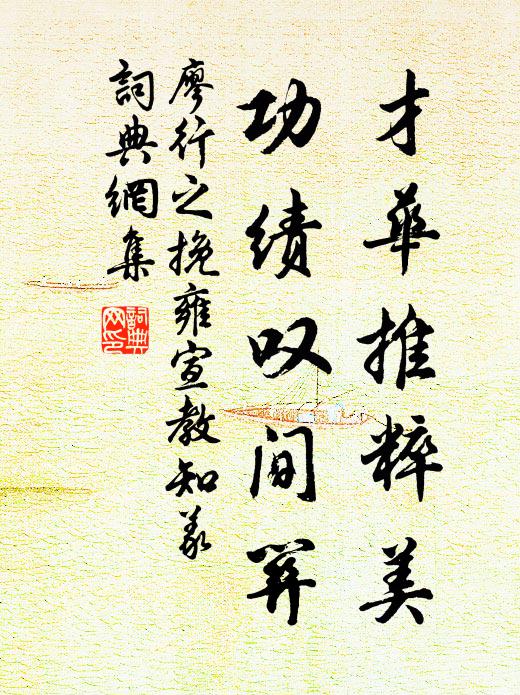 才華推粹美
功績叹間關
廖行之挽雍宣教知義
詞典網集
詞典网印